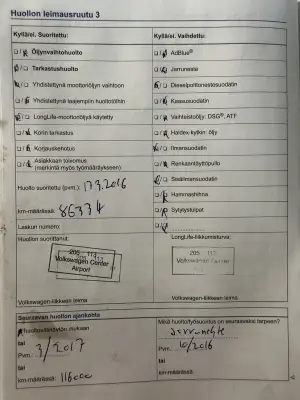 Huollon leimausruutu 3
Kyllä/ei. Suoritettu:
Kyllä/ei. Vaihdettu:
Öljynvaihtohuolto
Tarkastushuolto
Yhdistettynä moottoriöljyn vaihtoon
Yhdistettynä laajempiin huoltotöihin
LongLife-moottoriöljyä käytetty
Korin tarkastus
Korjauskehotus
Asiakkaan toivomus
(merkintä myös työmääräykseen)
Huolto suoritettu (pvm.): 17.3.2016
km-määrässä: 86334
Laskun numero:
Huollon suorittanut:
205 113
Volkswagen Center
Airport
Volkswagen-liikkeen leima
AdBlue®
Jarruneste
Dieselpolttonestesuodatin
Kaasusuodatin
Vaihteistoöljy: DSG®, ATF
Haldex-kytkin: öljy
Ilmansuodatin
Renkaantäyttöpullo
Sisäilmansuodatin
Hammashihna
Sytytystulpat
LongLife-liikkumisturva:
205 117
Volkswagen Center
Volkswagen-liikkeen leima
Seuraavan huollon ajankohta
huoltovälinäytön mukaan
tai
Pvm.: 3/2017
tai
km-määrässä: 116000
Mikä huoltotyösuoritus on seuraavaksi tarpeen?
Jarruneste
Pvm.: 10/2016
tai
km-määrässä: